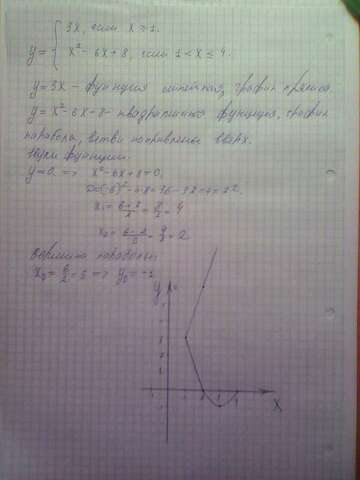 y = { 3x, если x ≥ 1.
x² - 6x + 8, если 1 < x ≤ 4.
y = 3x - функция линейная, график прямая.
y = x² - 6x + 8 - квадратичная функция, график
парабола, ветви направлены вверх.
Нули функции:
y = 0. => x² - 6x + 8 = 0.
x₁ = = 4
x₂ = = 2
Вершина параболы:
x₀ = 6/2 = 3 => y₀ = -1
y
x